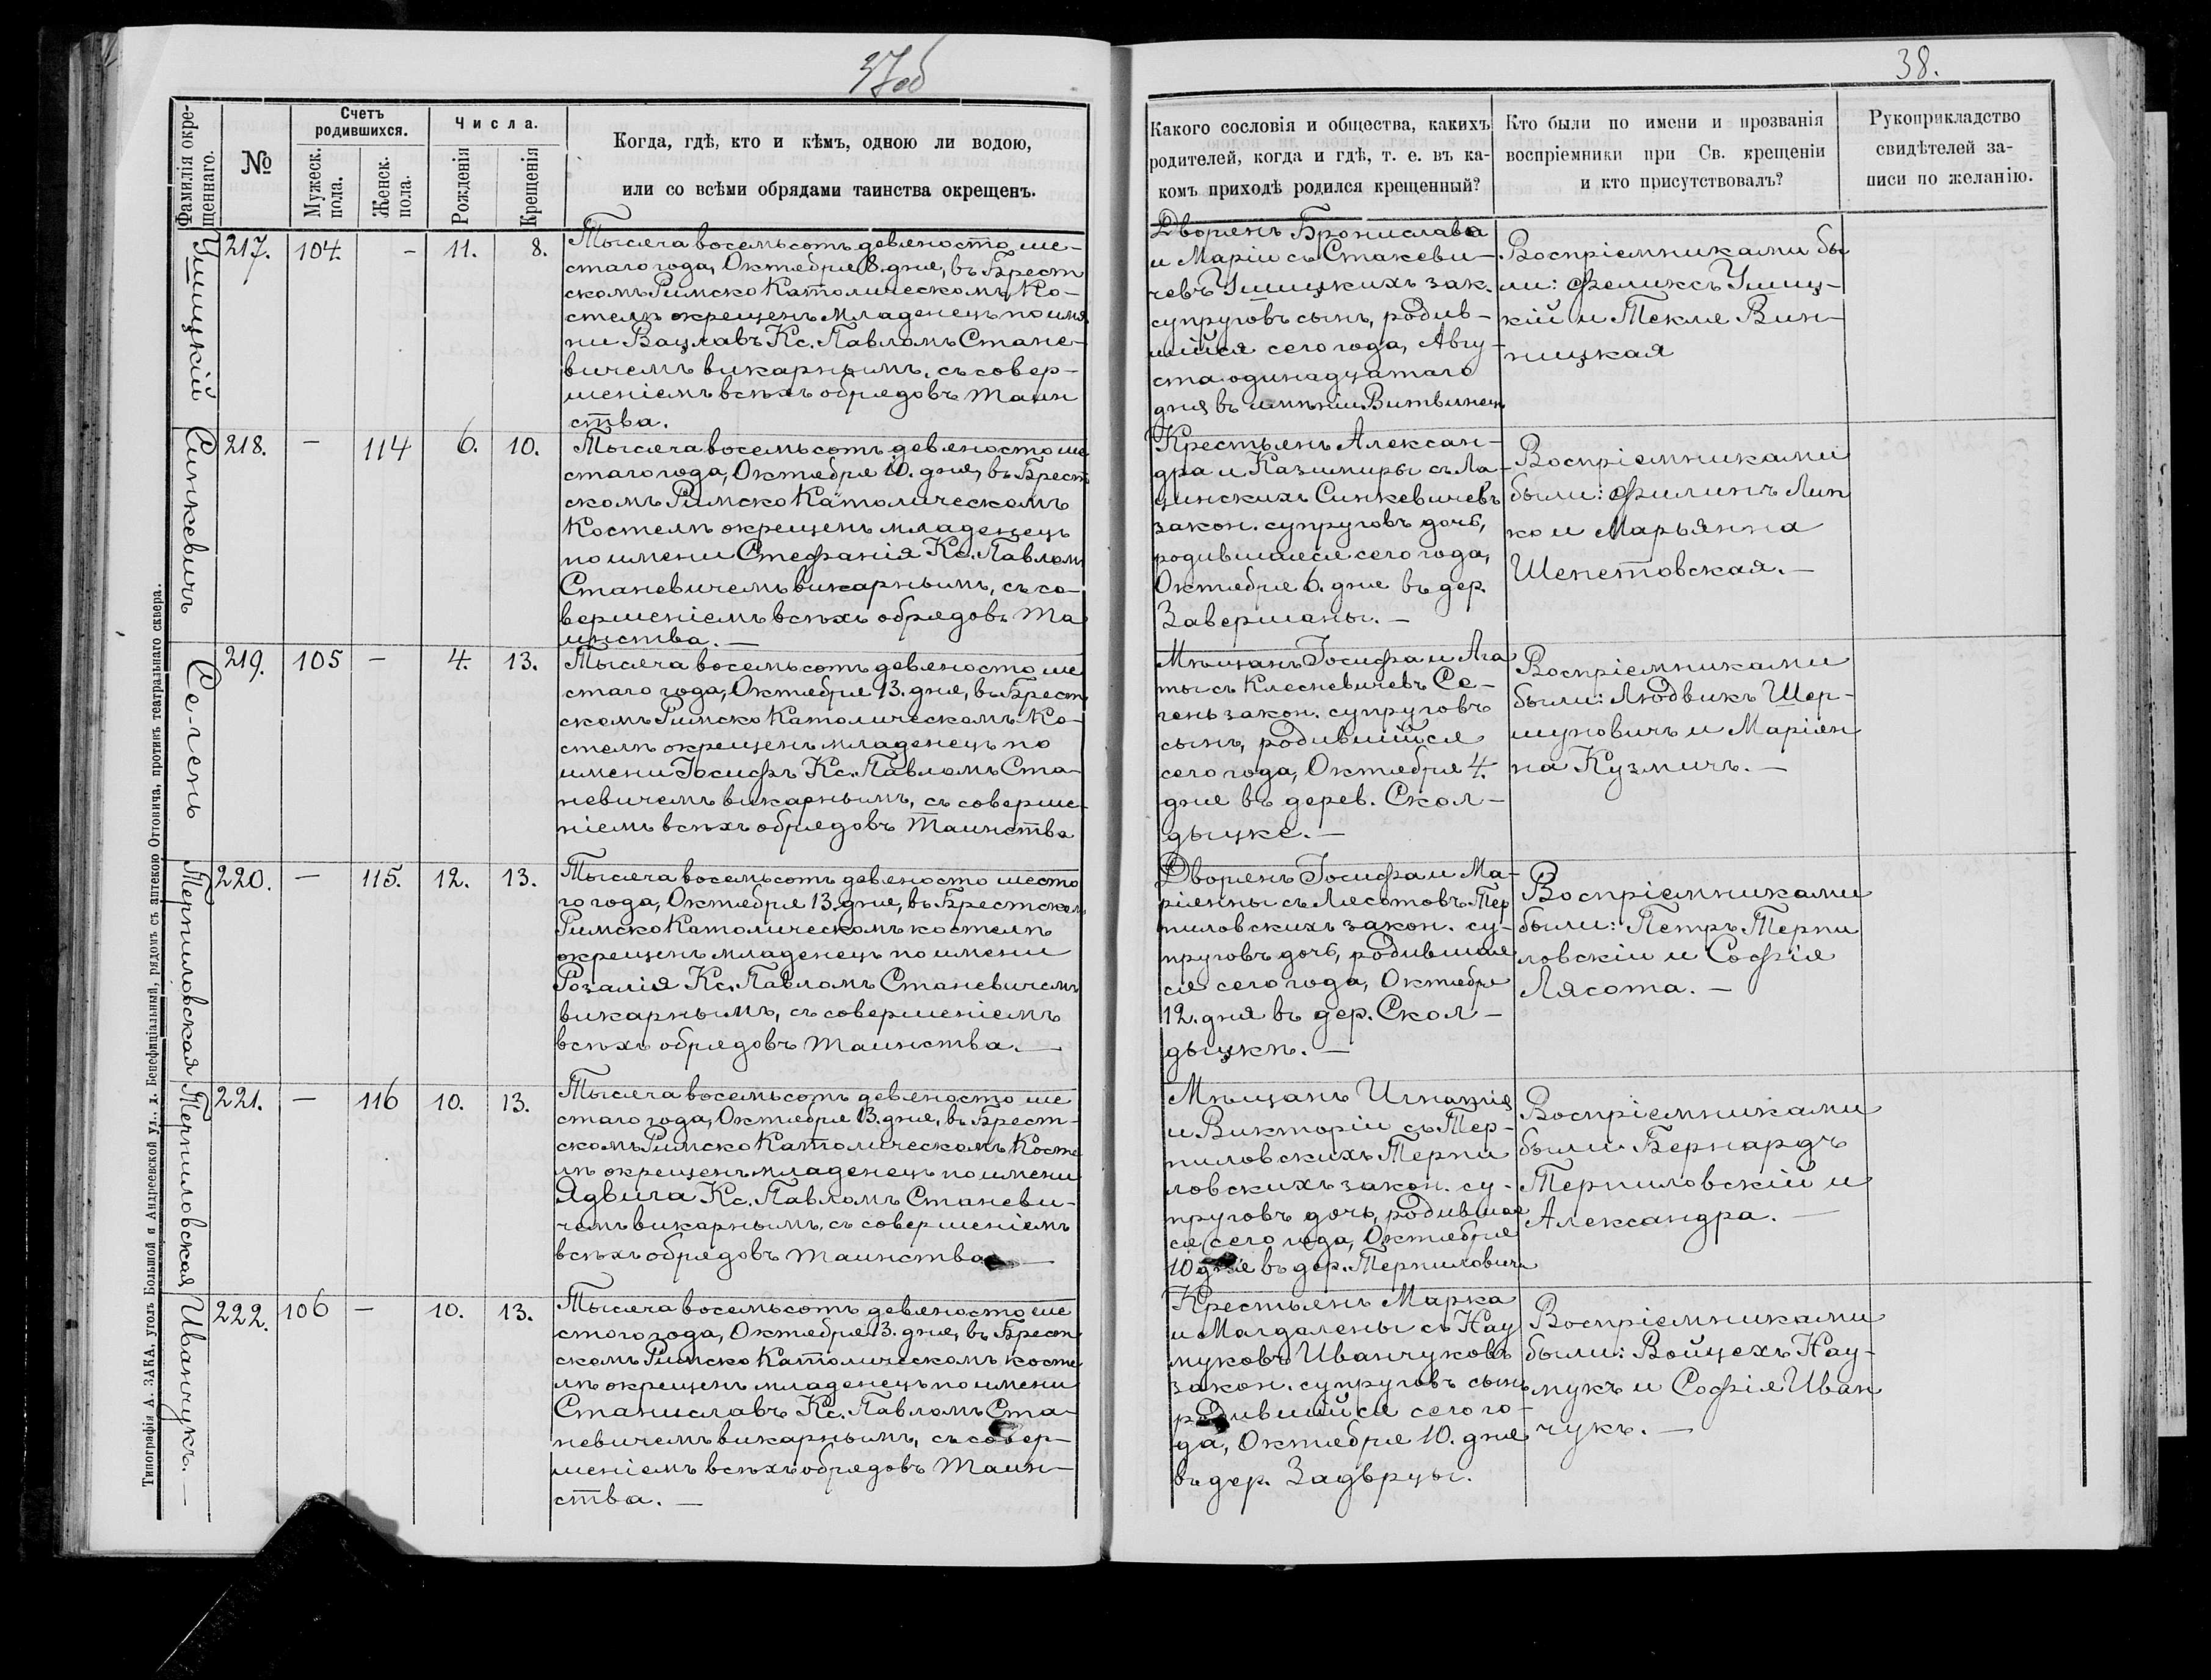 37об
38.
Фамилія окрещеннаго.
№
Счетъ родившихся.
Мужеск. пола.
Женск. пола.
Числа.
Рожденія
Крещенія
Когда, гдѣ, кто и кѣмъ, одною ли водою,
или со всѣми обрядами таинства окрещенъ.
Какого сословія и общества, какихъ
родителей, когда и гдѣ, т. е. въ ка-
комъ приходѣ родился крещенный?
Кто были по имени и прозванія
воспріемники при Св. крещеніи
и кто присутствовалъ?
Рукоприкладство
свидѣтелей за-
писи по желанію.
Типографія А. ЗАКА, уголъ Большой и Андреевской ул., д. Бенефиціальный, рядомъ съ аптекою Оттовича, противъ театральнаго сквера.
Ушицкій
217. 104. - 11. 8.
Тысяча восемьсотъ девяносто ше-
стаго года, Октября 8. дня, въ Брест
скомъ Римско Католическомъ Ко-
стелѣ окрещенъ младенецъ по име
ни Вацлавъ Кс. Павломъ Стане-
вичемъ викарнымъ, съ совер-
шеніемъ всѣхъ обрядовъ таин
ства.
Дворянъ Бронислава
и Маріи съ Стакеви-
чевъ Ушицкихъ зак.
супруговъ сынъ, родив-
шійся сего года, Авгу-
ста одинадцатаго
дня въ имѣніи Витвинецъ
Воспріемниками бы
ли: Феликсъ Ушиц-
кій и Текля Вин-
ницкая
Синкевичъ
218. — 114 6. 10.
Тысяча восемьсотъ девяносто ше
стаго года, Октября 10. дня, въ Брест
скомъ Римско Католическомъ
Костелѣ окрещенъ младенецъ
по имени Стефанія Кс. Павломъ
Становичемъ викарнымъ, съ со-
вершеніемъ всѣхъ обрядовъ Та
инства. —
Крестьянъ Алексан-
дра и Казимиры съ Ла-
цинскихъ Синкевичевъ
закон. супруговъ дочь,
родившаяся сего года,
Октября 6. дня въ дер.
Завершаны. —
Воспріемниками
были: Филипъ Лип
ко и Марьянна
Шепетовская. —
Се-гень
219. 105 — 4. 13.
Тысяча восемьсотъ девяносто ше
стаго года, Октября 13. дня, въ Брест
скомъ Римско Католическомъ Ко-
стелѣ окрещенъ младенецъ по
имени Іосифъ Кс. Павломъ Ста-
невичемъ викарнымъ, съ соверше-
ніемъ всѣхъ обрядовъ Таинства
Мѣщанъ Іосифа и Ага
ты съ Клесневичевъ Се-
гень закон. супруговъ
сынъ, родившійся
сего года, Октября 4.
дня въ дерев. Скол-
дыцке. —
Воспріемниками
были: Людвикъ Шер-
шуновичъ и Маріян
на Кузмичъ. —
Терпиловская
220. — 115. 12. 13.
Тысяча восемьсотъ девяносто шесто
го года, Октября 13. дня, въ Брестскомъ
Римско Католическомъ костелѣ
окрещенъ младенецъ по имени
Розалія Кс. Павломъ Станевичемъ
викарнымъ, съ совершеніемъ
всѣхъ обрядовъ таинства. —
Дворянъ Іосифа и Ма-
ріянны съ Лясотовъ Тер
пиловскихъ закон. су-
пруговъ дочь, родившая
ся сего года, Октября
12. дня въ дер. Скол-
дыцкѣ. —
Воспріемниками
были: Петръ Терпи
ловскіи и Софія
Лясота. —
Терпиловская
221. — 116 10. 13.
Тысяча восемьсотъ девяносто ше
стаго года, Октября 13. дня, въ Брест-
скомъ Римско Католическомъ Косте
лѣ окрещенъ младенецъ по имени
Ядвига Кс. Павломъ Станеви-
чемъ викарнымъ, съ совершеніемъ
всѣхъ обрядовъ таинства —
Мѣщанъ Игнатія
и Викторіи съ Тер-
пиловскихъ Терпи
ловскихъ закон. су-
пруговъ дочь, родившая
ся сего года, Октября
10 дня въ дер. Терпиловичи
Воспріемниками
были Бернардъ
Терпиловскій и
Александра. —
Иванчукъ. —
222. 106 — 10. 13.
Тысяча восемьсотъ девяносто ше
стого года, Октября 13. дня, въ Брест
скомъ Римско Католическомъ косте
лѣ окрещенъ младенецъ по имени
Станиславъ Кс. Павломъ Ста-
невичемъ викарнымъ, съ совер-
шеніемъ всѣхъ обрядовъ Таин-
ства. —
Крестьянъ Марка
и Магдалены съ Нау
муковъ Иванчуковъ
закон. супруговъ сынъ
родившійся сего го-
да, Октября 10. дня
въ дер. Задворцы.
Воспріемниками
были: Войцехъ Нау-
мукъ и Софія Иван
чукъ. —